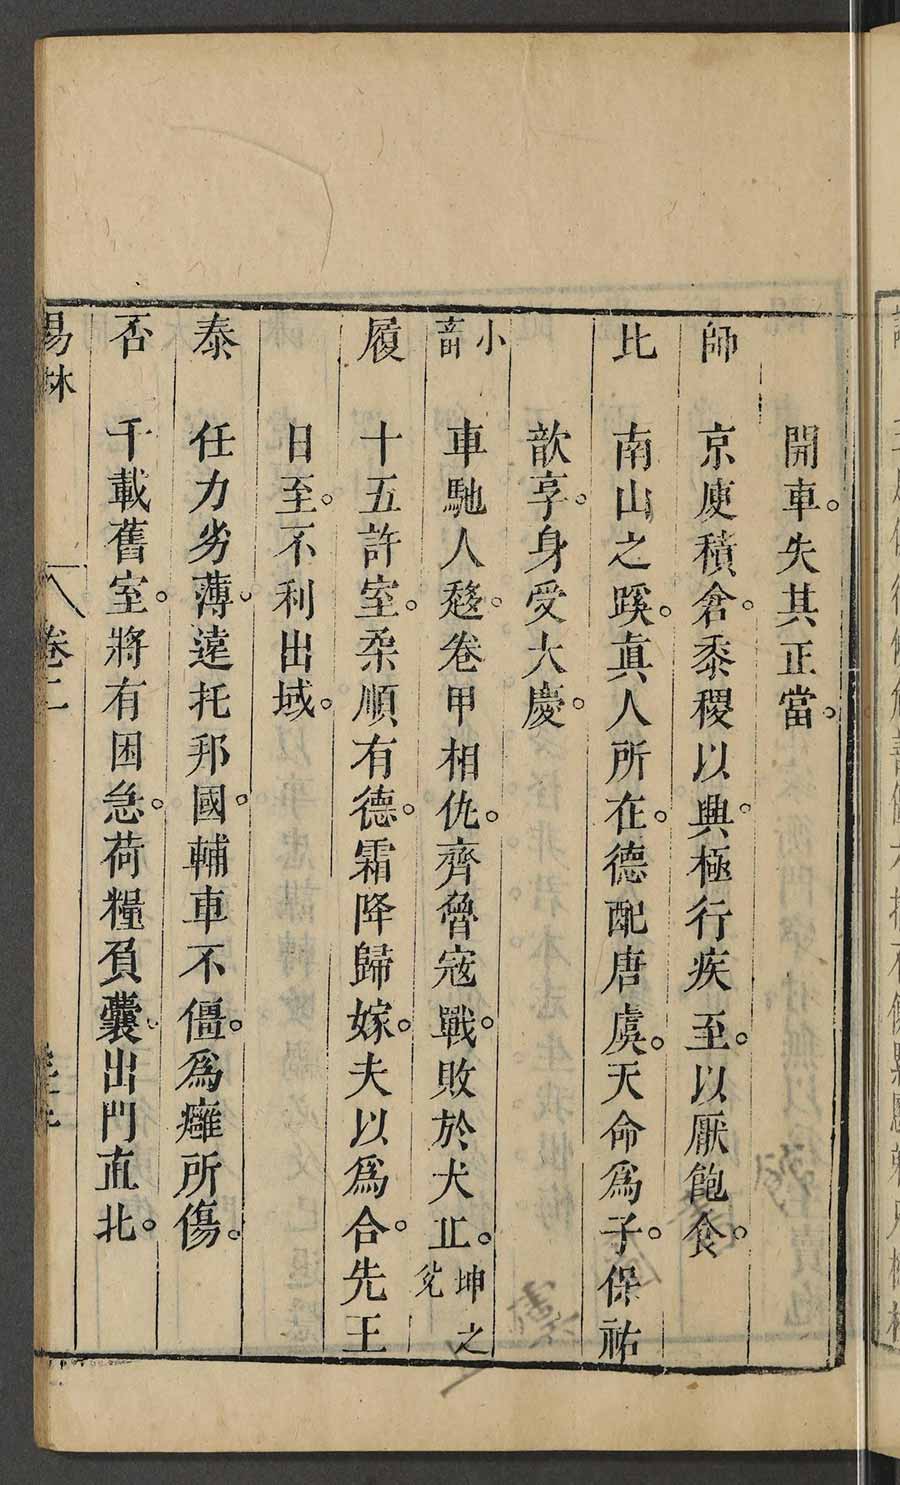 開車。失其正當。
師　京庾積倉。黍稷以興。極行疾至。以厭飽食。
比　南山之蹊。眞人所在。德配唐虞。天命爲子。保祐
歆享。身受大慶。
小畜　車馳人趍。卷甲相仇。齊魯寇戰。敗於犬丘。坤之兌
履　十五許室。柔順有德。霜降歸嫁。夫以爲合。先王
日至。不利出域。
泰　任力劣薄。遠托邦國。輔車不僵。爲癰所傷。
否　千載舊室。將有困急。荷糧負囊。出門直北。
易林　卷二